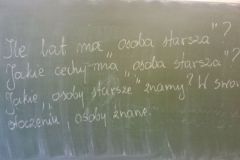 Ile lat ma „osoba starsza"?
Jakie cechy ma „osoba starsza"?
Jakie „osoby starsze" znamy? W swoim
otoczeniu, osoby znane.